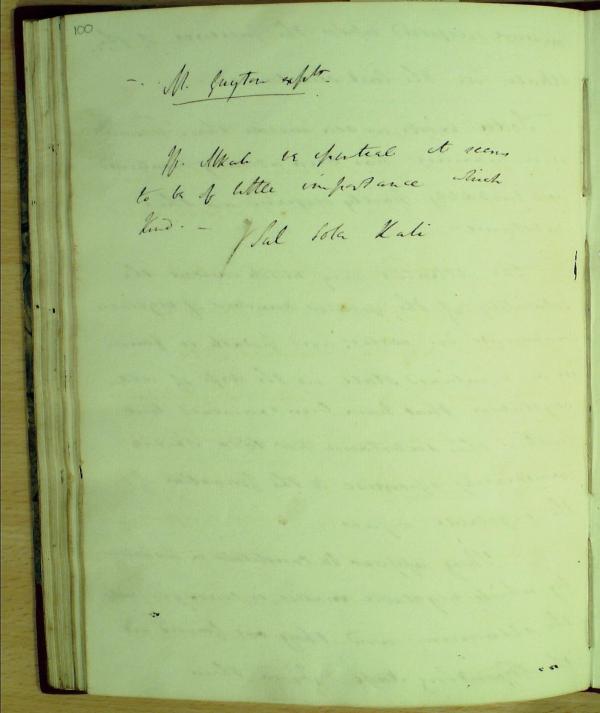 100
- . M. Guyton expts -
If Alkali is essential it seems
to be of little importance which
kind. - Sal Sola Kali